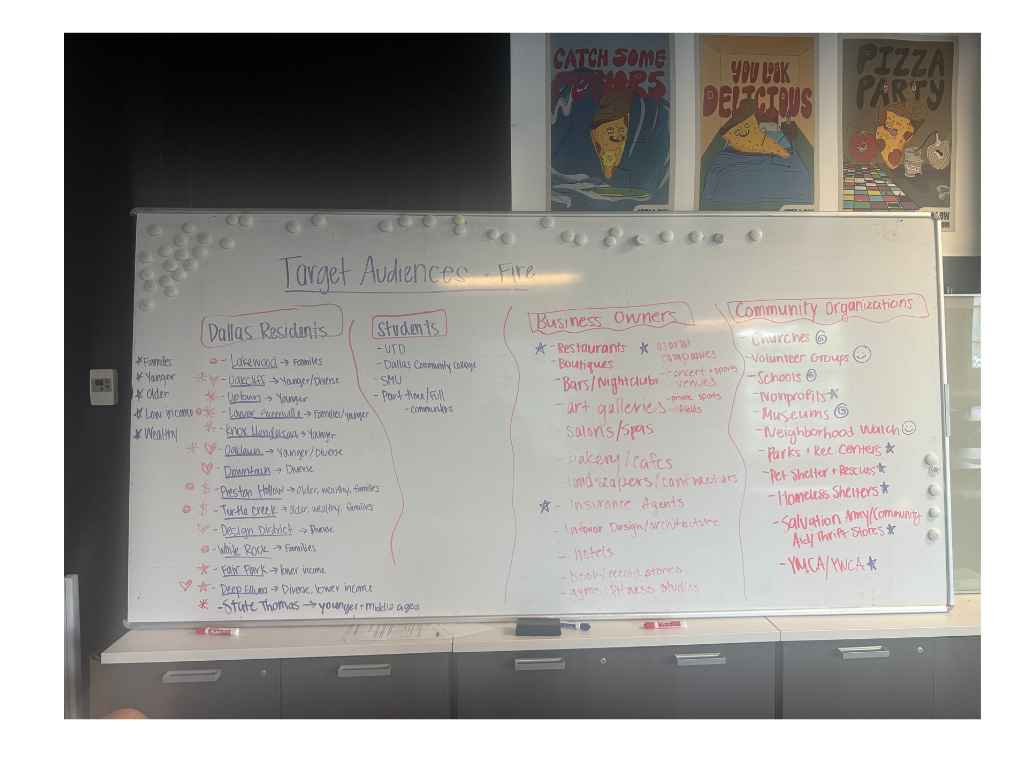 CATCH SOME
FLAVORS
YOU LOOK
DELICIOUS
PIZZA
PARTY
Target Audiences - Fire
Dallas Residents
Families
Yonger
Older
Low income
Wealthy
- Lakewood → Families
- Oakcliff → Younger/Diverse
- Uptown → Younger
- Lower Greenville → Families/younger
- Knox Henderson → Younger
- Oaklawn → Younger/Diverse
Downtown → Diverse
- Preston Hollow → older, wealthy, families
- Turtle creek → older, wealthy, families
- Design District → Diverse
- White Rock → Families
- Fair Park → lower income
- Deep Ellum → Diverse, lower income
- State Thomas → younger + middle aged
Students
- UTD
- Dallas Community College
- SMU
- Part time/Full
- commuters
Business Owners
- Restaurants
- Boutiques
- Bars/Nightclubs
- art galleries
- salons/spas
- bakery/cafes
- landscapers/contractors
- Insurance Agents
- Interior Design/architecture
- hotels
- book/record stores
- gyms/fitness studios
companies
- concert + sports
venues
- private sports
fields
Community Organizations
- Churches
- Volunteer Groups
- Schools
- Nonprofits
- Museums
- Neighborhood Watch
- Parks + Rec. Centers
- Pet Shelter + Rescues
- Homeless Shelters
- Salvation Army/Community
Aid/Thrift Stores
- YMCA/YWCA